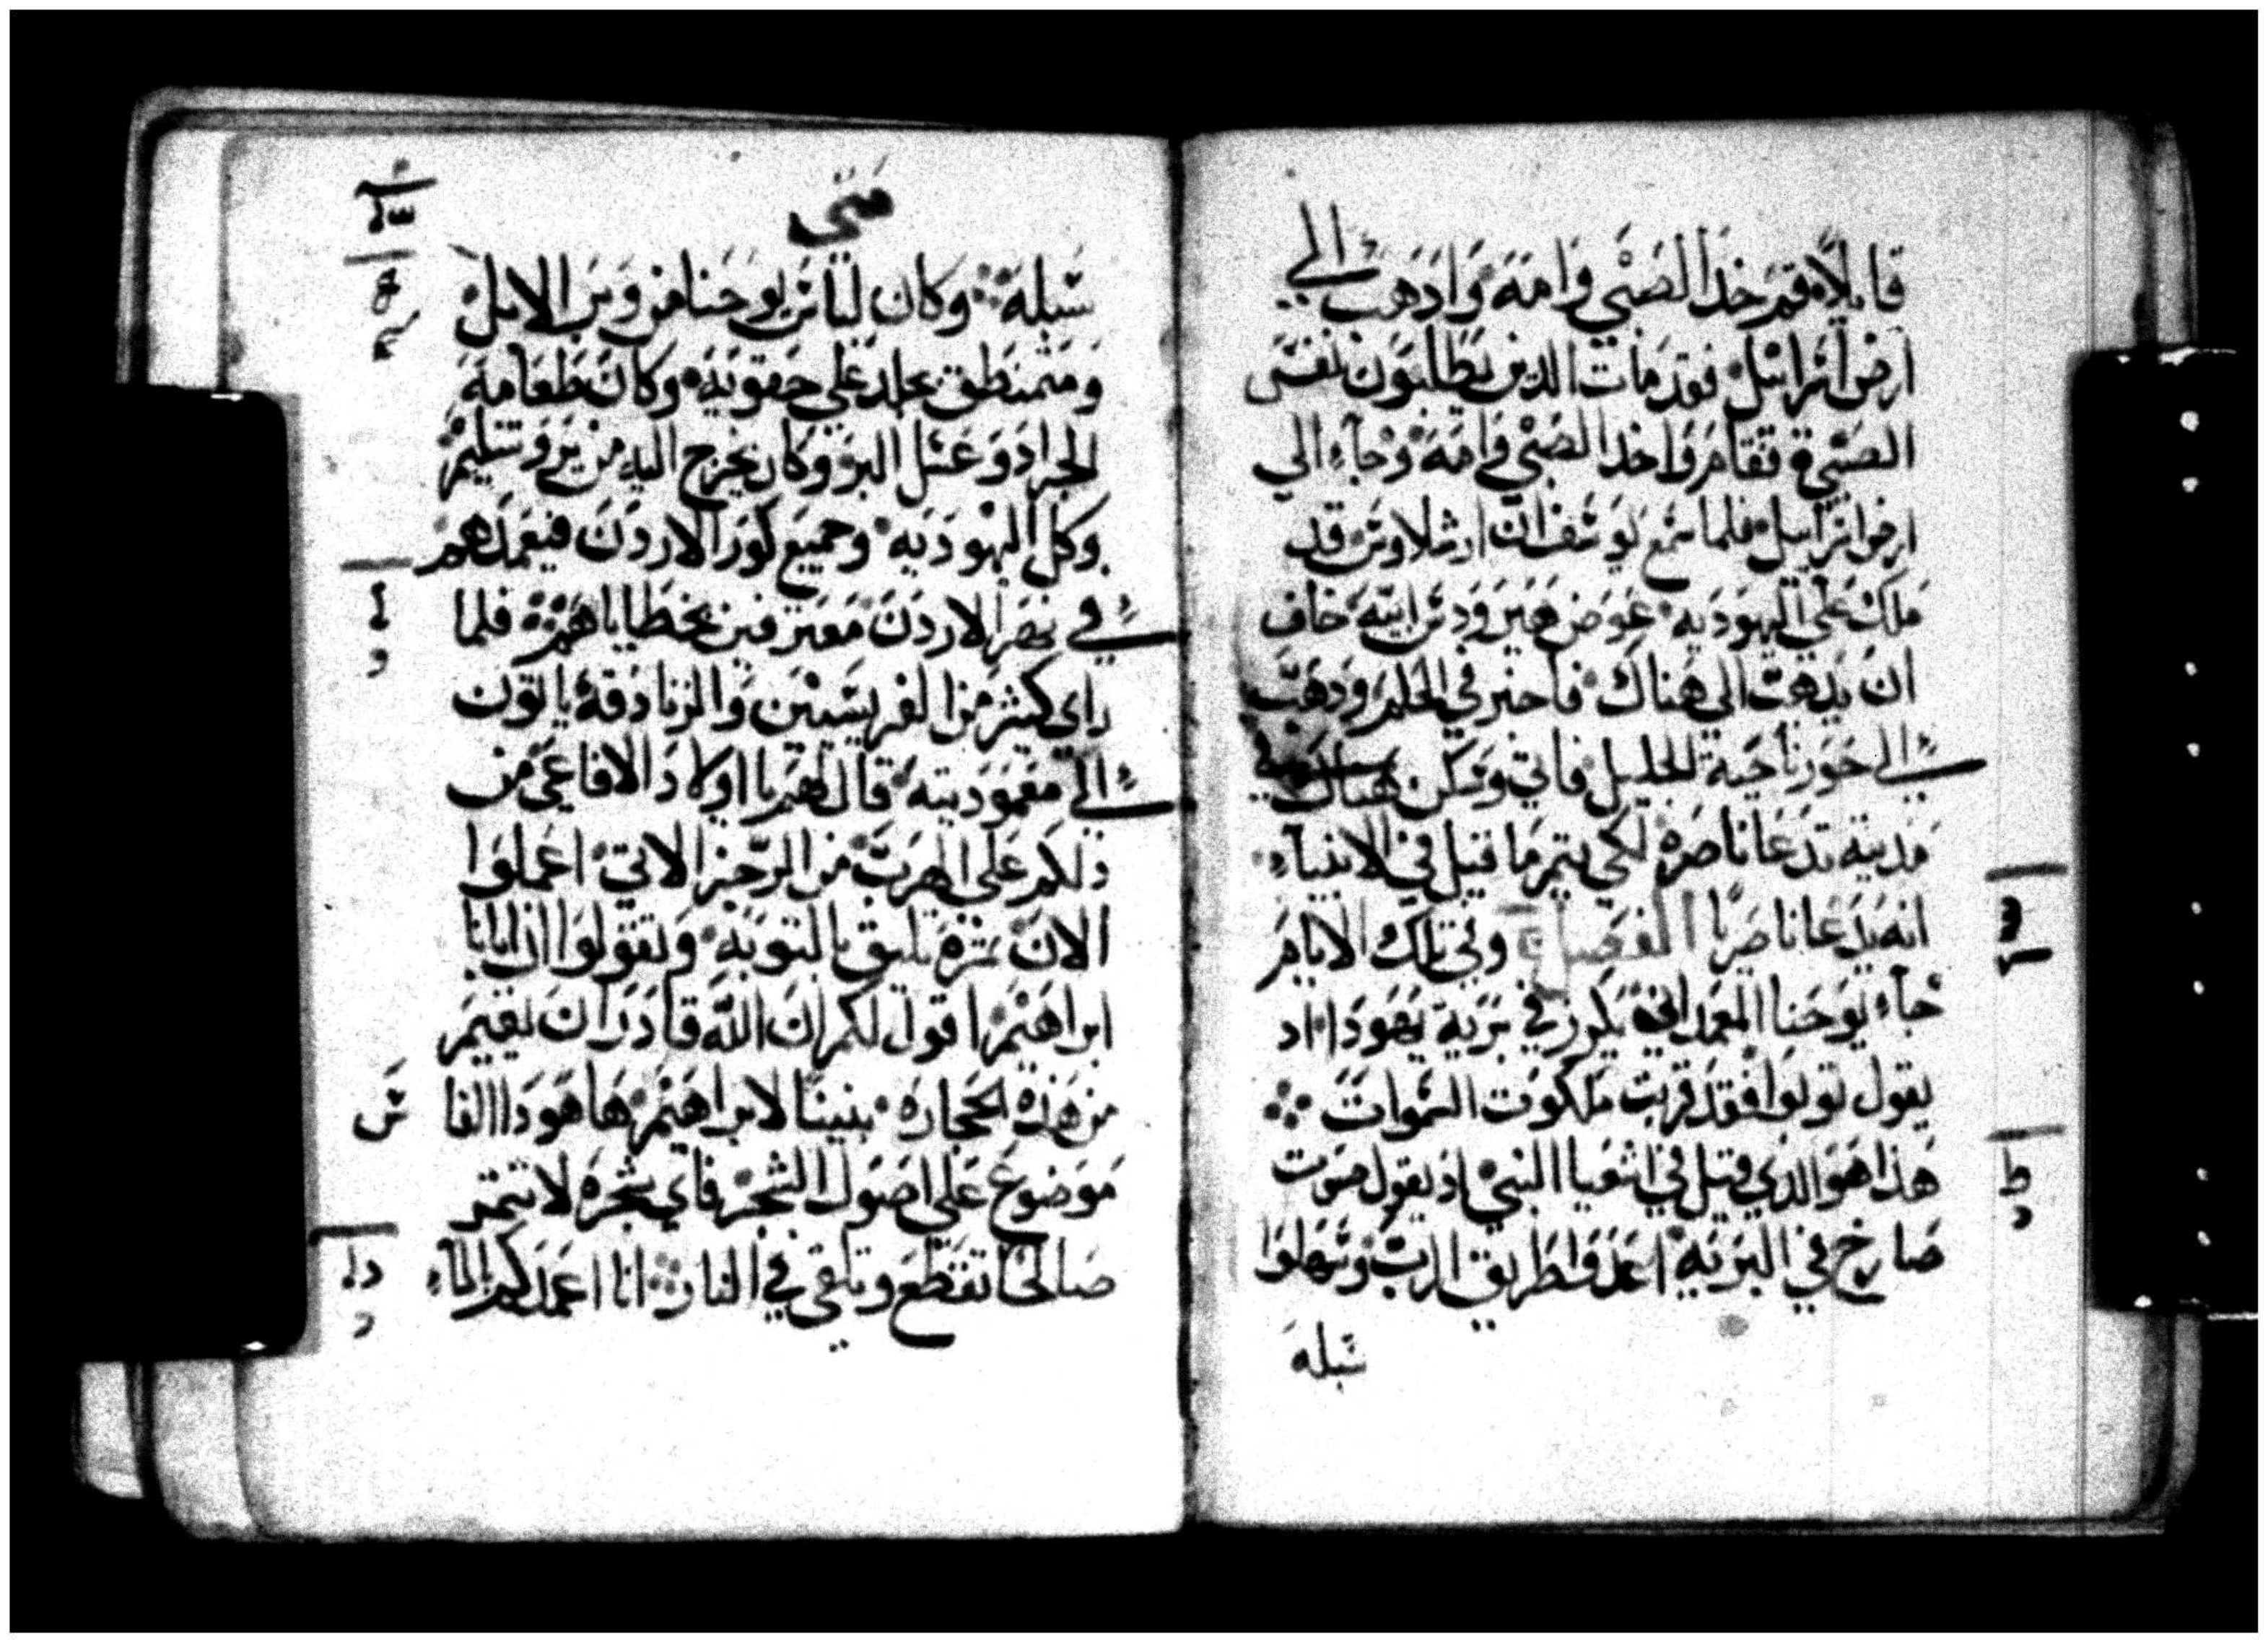 قايلا قم خذ الصبي وامه واذهب الي
ارض اسرائيل فقد مات الذين يطلبون نفس
الصبي فقام واخذ الصبي وامه وجاء الي
ارض اسراييل فلما سمع يوسف ان ارشلاوس قد
ملك علي اليهوديه عوض هيرودس ابيه خاف
ان يذهب الي هناك فاخبر في الحلم وذهب
الي حور ناحية الجليل فاتي وسكن هناك في
مدينه تدعا ناصره لكي يتم ما قيل في الانبياء
انه يدعا ناصريا الفصل وفي تلك الايام
جاء يوحنا المعمداني يكرز في برية يهودا اد
يقول توبوا فقد قربت ملكوت السموات
هذا هو الدي قيل في اشعيا النبي اذ يقول صوت
صارخ في البريه اعدوا طريق الرب وسهلوا
سبله
متي
سبله وكان لباس يوحنا من وبر الابل
ومتمنطق بجلد علي حقويه وكان طعامه
الجراد وعسل البر وكان يخرج اليه من يروشليم
وكل اليهوديه وجميع كور الاردن فيعمدهم
في نهر الاردن معترفين بخطاياهم فلما
راي كثير من الفريسيين والزنادقه ياتون
الي معموديته قال لهم يا اولاد الافاعي من
دلكم علي الهرب من الرجز الاتي اعملوا
الان ثمره تليق بالتوبه وتقولوا ان ابانا
ابراهيم اقول لكم ان الله قادر ان يقيم
من هذه الحجاره بنينا لابراهيم ها هودا الفا
س
موضوع علي اصول الشجر فاي شجره لا تتمر
صالحا تقطع وتلقي في النار انا اعمدكم بالماء